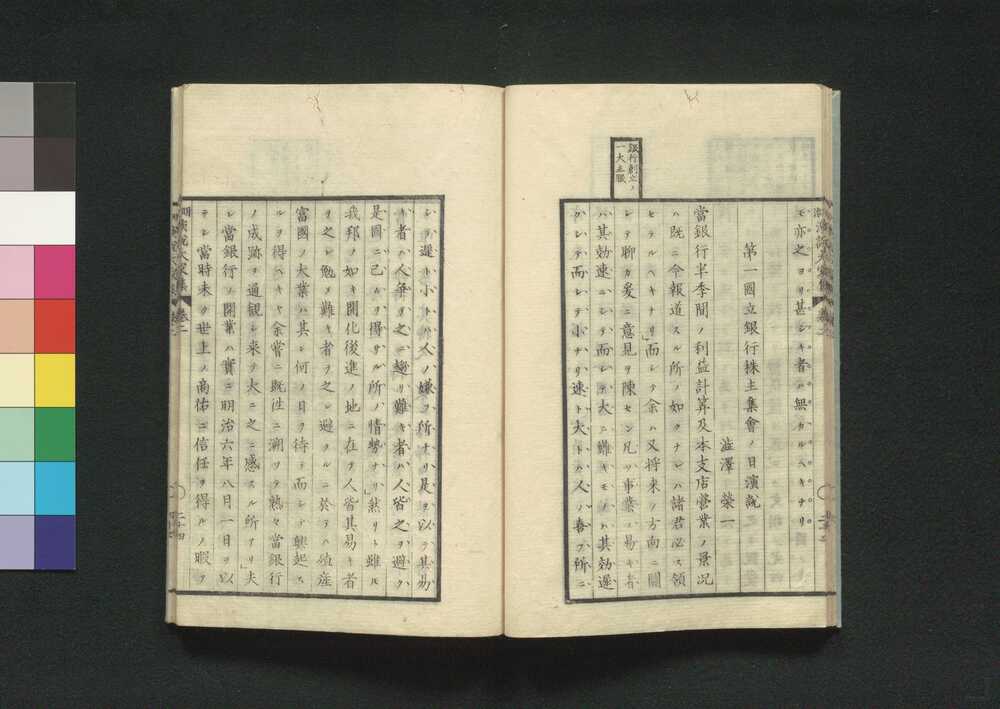 モ亦之ヨリ甚シキ者ハ無カルヘキナリ
第一國立銀行株主集會ノ日演説
澁澤榮一
銀行創立ノ
一大主眼
當銀行半季間ノ利益計算及本支店營業ノ景況
ハ既ニ今報道スル所ノ如クナレハ諸君必ス領
セラルヘキナリ」而シテ余ハ又將来ノ方向ニ關
シテ聊カ爰ニ意見ヲ陳セン凡ソ事業ノ易キ者
ハ其効速ニシテ而シテ大ニ難キモノハ其効遲
クシテ而シテ小ナリ速ト大トハ人ノ喜フ所ニ
シテ遲ト小トハ人ノ嫌フ所ナリ是ヲ以テ其易
キ者ハ人争テ之ニ趨リ難キ者ハ人皆之ヲ避ク
是固ニ已ムヲ得サル所ノ情勢ナリ」然リト雖ル
我邦ノ如キ開化後進ノ地ニ在テ人皆其易キ者
ヲ之レ勉メ難キ者ヲ之レ避クルニ於テハ殖産
富國ノ大業ハ其レ何ノ日ヲ待テ而シテ興起ス
ルヲ得ヘキヤ余嘗ニ既往ニ溯テ熟々當銀行
ノ成跡ヲ通観シ来テ大ニ之ニ感スル所アリ」夫
レ當銀行ノ開業ハ實ニ明治六年八月一日ヲ以
テシ當時未タ世上ノ商估ニ信任ヲ得ルノ暇ア
卷二
二十四